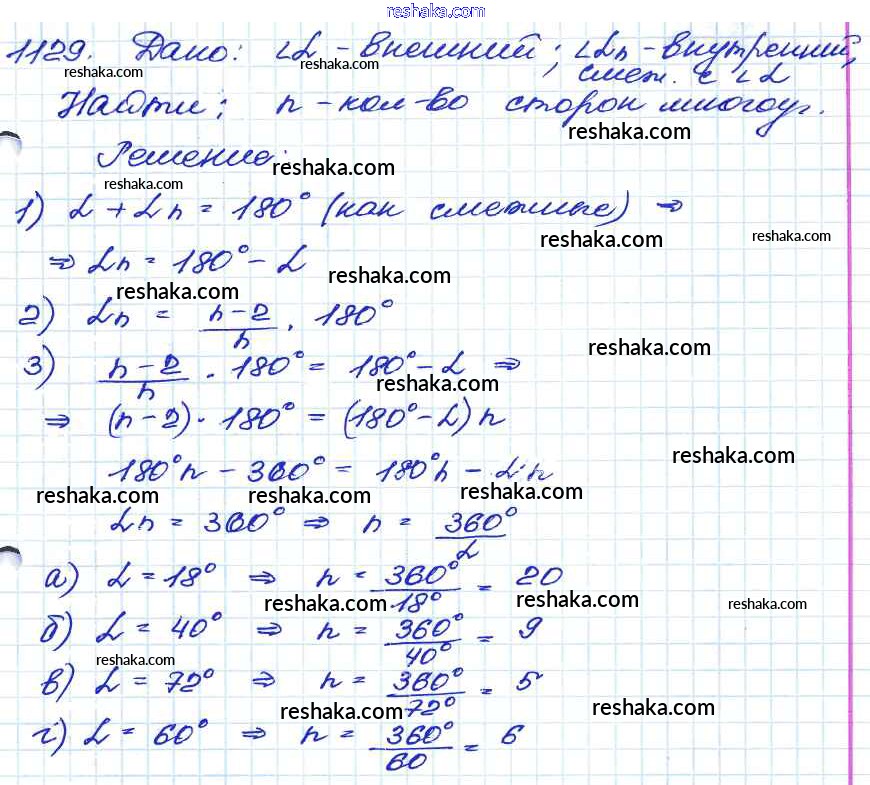 reshaka.com
1129. Дано: ∠L - внешний; ∠Ln - внутренний,
reshaka.com reshaka.com
смеж. с ∠L
Найти: n - кол-во сторон многоуг.
reshaka.com
Решение:
reshaka.com
reshaka.com
1) L + Ln = 180° (как смежные) ⇒
reshaka.com reshaka.com
⇒ Ln = 180° - L
reshaka.com
reshaka.com
2) Ln = n-2/n · 180°
reshaka.com
3) n-2/n · 180° = 180° - L ⇒
reshaka.com
⇒ (n-2) · 180° = (180° - L) n
reshaka.com
180°n - 360° = 180°n - L·n
reshaka.com reshaka.com reshaka.com
Ln = 360° ⇒ n = 360°/L
а) L = 18° ⇒ n = 360°/18° = 20
reshaka.com reshaka.com reshaka.com
б) L = 40° ⇒ n = 360°/40° = 9
reshaka.com
в) L = 72° ⇒ n = 360°/72° = 5
reshaka.com reshaka.com
г) L = 60° ⇒ n = 360°/60 = 6